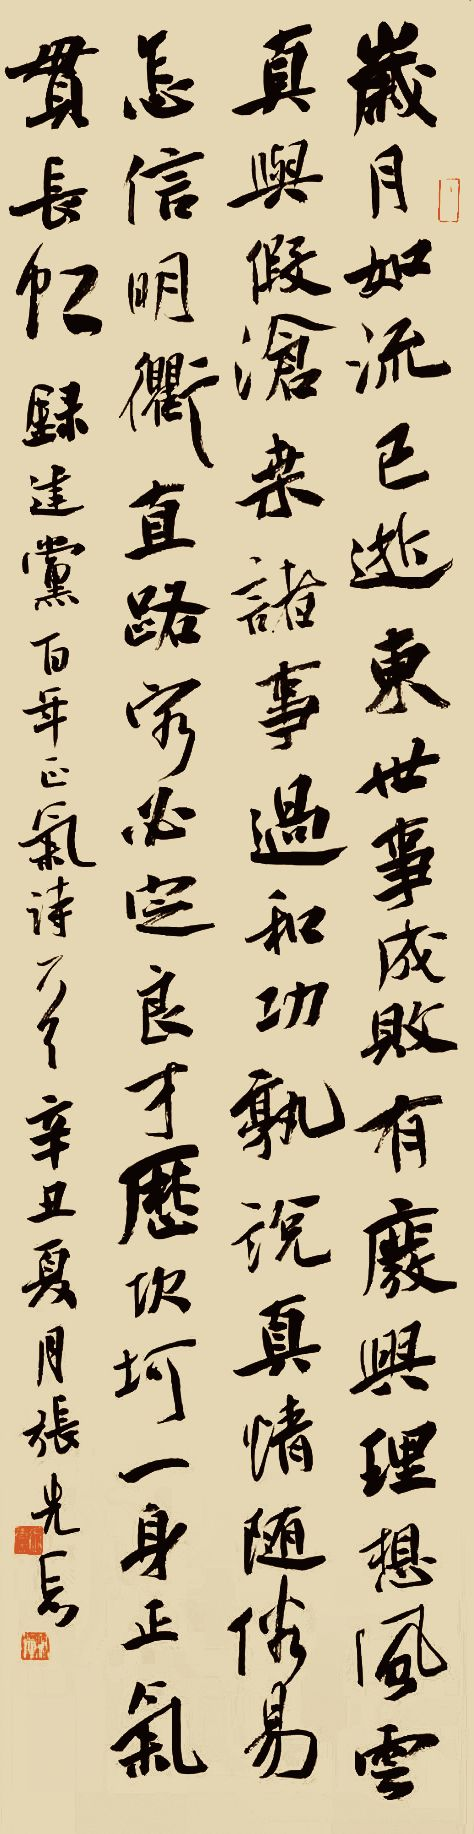 歲月如流已逝東世事成敗有廢興理想風雲
真與假滄桒諸事過和功孰說真情随俗易
怎信明衢直路穷必定良才歷坎坷一身正氣
貫長虹 錄建黨百年正氣詩一首 辛丑夏月張光